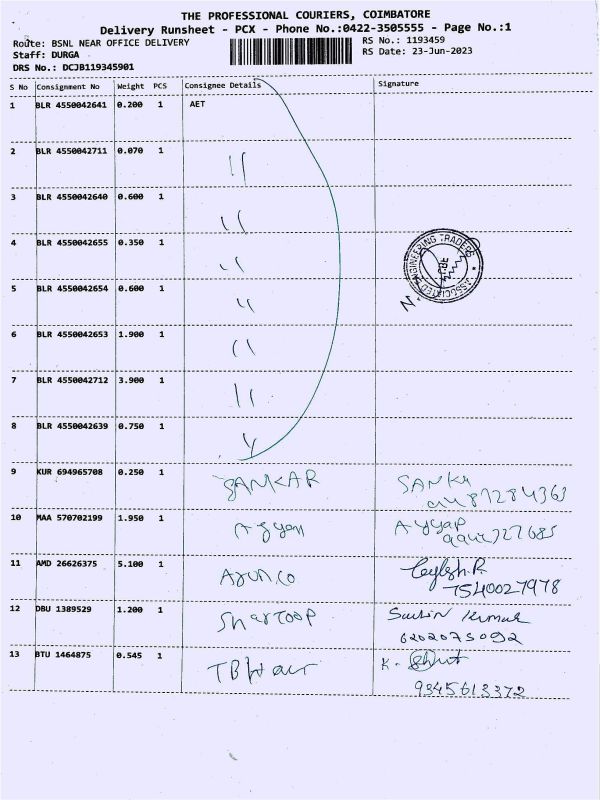 THE PROFESSIONAL COURIERS, COIMBATORE
Delivery Runsheet - PCX - Phone No.:0422-3505555 - Page No.:1
Route: BSNL NEAR OFFICE DELIVERY
RS No.: 1193459
Staff: DURGA
RS Date: 23-Jun-2023
DRS No.: DCJB119345901
S No Consignment No Weight PCS Consignee Details Signature
1 BLR 4550042641 0.200 1 AET
2 BLR 4550042711 0.070 1 11
3 BLR 4550042640 0.600 1 11
4 BLR 4550042655 0.350 1 11
ENGINEERING TRADERS ASSOCIATED
5 BLR 4550042654 0.600 1 11
6 BLR 4550042653 1.900 1 11
7 BLR 4550042712 3.900 1 11
8 BLR 4550042639 0.750 1
9 KUR 694965708 0.250 1 SANKAR SANKA
10 MAA 570702199 1.950 1 Ayyap
11 AMD 26626375 5.100 1 Arunco
7540027978
12 DBU 1389529 1.200 1 SharToop Sachin Kumar
6202075092
13 BTU 1464875 0.545 1 K.
9345613372